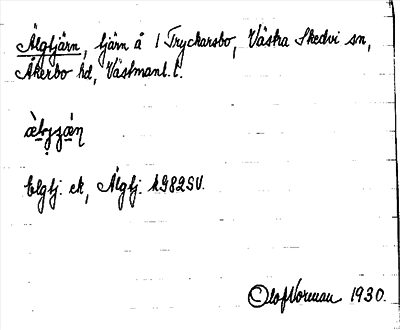 Älgtjärn, tjärn å 1 Tryckarsbo, Västra Skedvi sn,
Åkerbo hd, Västmanl. l.
Elgtj. ek, Älgtj. kG82SV.
Olof Norman 1930.